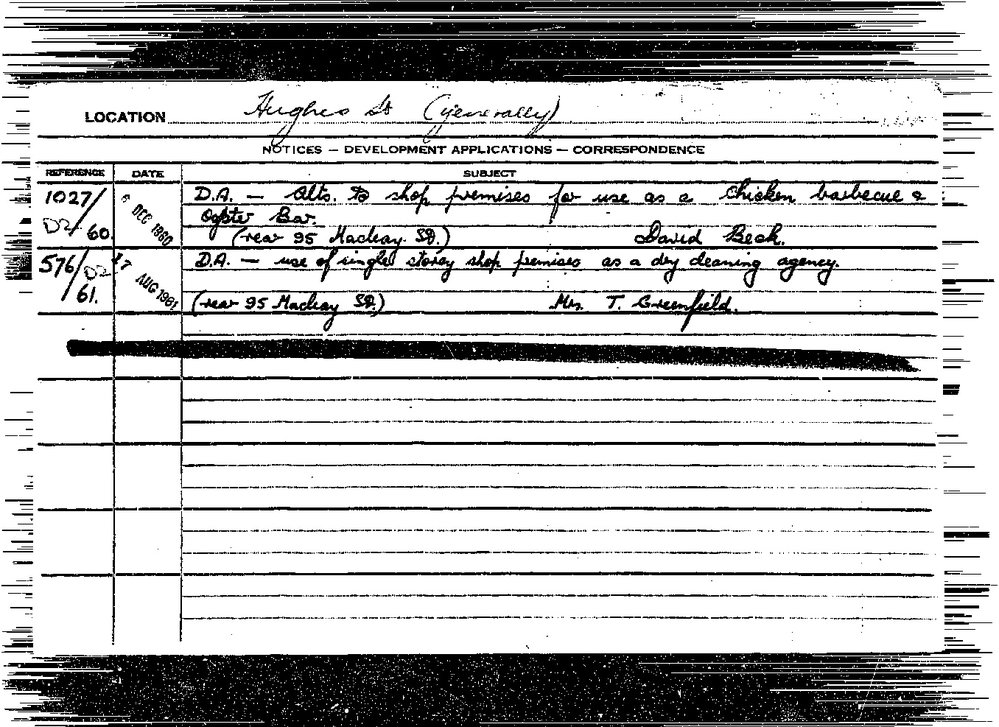 LOCATION Hughes St (generally)
NOTICES — DEVELOPMENT APPLICATIONS — CORRESPONDENCE
REFERENCE DATE SUBJECT
1027/ D2/ 60. 6 DEC 1960 D.A. — Alts. to shop premises for use as a Chicken barbecue &
Oyster Bar.
(rear 95 Macleay St.) David Beck.
576/ D2 /61. 17 AUG 1961 D.A. — use of single storey shop premises as a dry cleaning agency.
(rear 95 Macleay St.) Mrs. T. Greenfield.